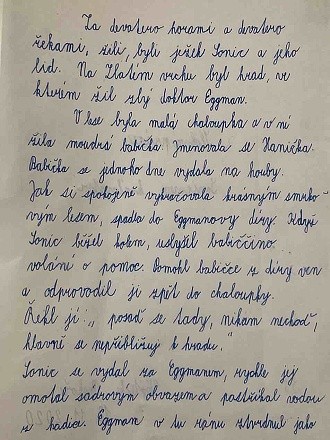 Za devatero horami a devatero
řekami, žili, byli ježek Sonic a jeho
lid. Na Zlatém vrchu byl hrad, ve
kterém žil zlý doktor Eggman.
V lese byla malá chaloupka a v ní
žila moudrá babička. Jmenovala se Hanička.
Babička se jednoho dne vydala na houby.
Jak si spokojeně vykračovala krásným smrko-
vým lesem, spadla do Eggmanovy díry. Když
Sonic běžel kolem, uslyšel babiččino
volání o pomoc. Pomohl babičce z díry ven
a odprovodil ji zpět do chaloupky.
Řekl jí: „ posaď se tady, nikam nechoď,
hlavně se nepřibližuj k hradu."
Sonic se vydal za Eggmanem, rychle jej
omotal sádrovým obvazem a postříkal vodou
z hadice. Eggman v tu ránu ztvrdnul jako